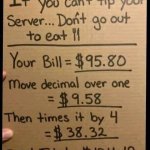 If you can't tip your
Server... Don't go out
to eat!!
Your Bill = $95.80
Move decimal over one
= $9.58
Then times it by 4
= $38.32